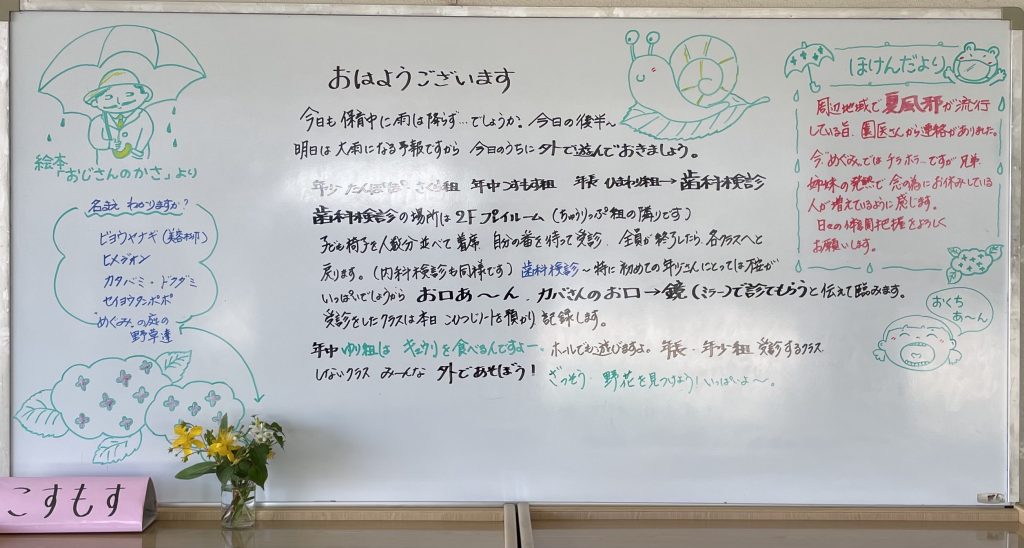 おはようございます
今日も保育中に雨は降らず…でしょうか。今日の後半〜
明日は大雨になる予報ですから 今日のうちに外で遊んでおきましょう。
年少 たんぽぽ さくら組 年中 こすもす組 年長 ひまわり組→歯科検診
歯科検診の場所は2Fプレイルーム(ちゅうりっぷ組の隣りです)
子ども椅子を人数分並べて着席 自分の番を待って受診 全員が終了したら、各クラスへと
戻ります。(内科検診も同様です) 歯科検診〜特に初めての年少さんにとっては不安が
いっぱいでしょうから お口あ〜ん、カバさんのお口→鏡(ミラー)で診てもらうと伝えて臨みます。
受診をしたクラスは本日 こひつじノートを預かり 記録します。
年中 ゆり組は キュウリを食べるんですよー。ホールでも遊びますよ。年長・年少組 受診するクラス
しないクラス みーんな 外であそぼう! ざっそう・野花を見つけよう!いっぱいよ〜。
絵本
「おじさんのかさ」より
名まえ わかりますか?
ビヨウヤナギ(美容柳)
ヒメジオン
カタバミ・ドクダミ
セイヨウタンポポ
"めぐみ"の庭の
野草達
ほけんだより
周辺地域で夏風邪が流行
している旨、園医さんから連絡がありました。
今、めぐみではチラホラ…ですが 兄弟
姉妹の発熱で 念の為にお休みしている
人が増えているように感じます。
日々の体調把握をよろしく
お願いします。
おくち
あ〜ん
こすもす